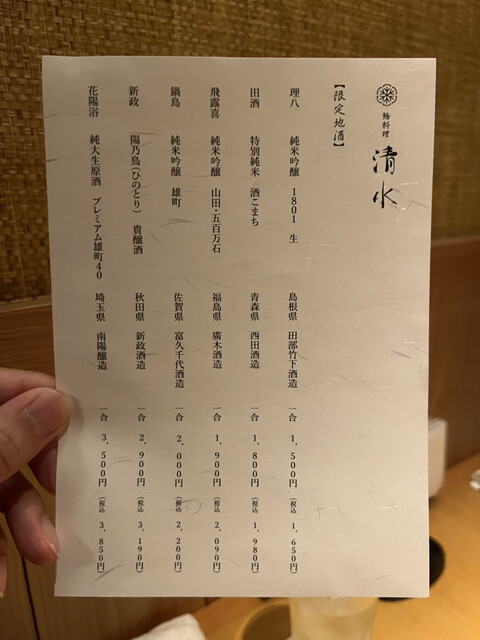 鮨料理
清水
【限定地酒】
理八 純米吟醸 1801 生 島根県 田部竹下酒造 一合 1,500円 (税込 1,650円)
田酒 特別純米 酒こまち 青森県 西田酒造 一合 1,800円 (税込 1,980円)
飛露喜 純米吟醸 山田・五百万石 福島県 廣木酒造 一合 1,900円 (税込 2,090円)
鍋島 純米吟醸 雄町 佐賀県 富久千代酒造 一合 2,000円 (税込 2,200円)
新政 陽乃鳥(ひのとり) 貴醸酒 秋田県 新政酒造 一合 2,900円 (税込 3,190円)
花陽浴 純大生原酒 プレミアム雄町40 埼玉県 南陽醸造 一合 3,500円 (税込 3,850円)